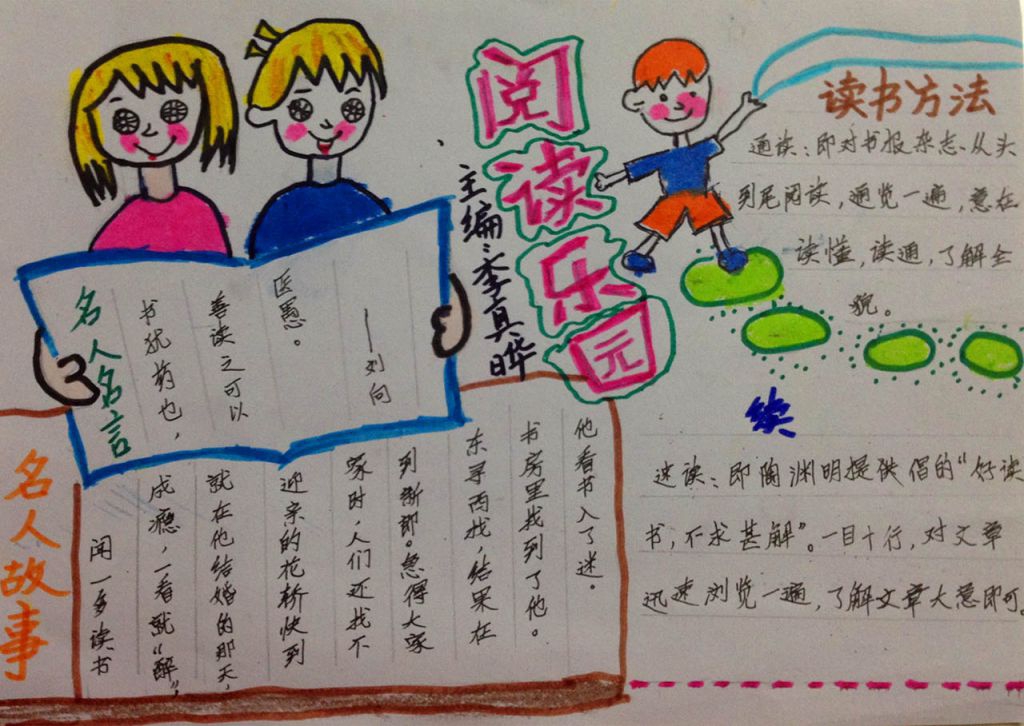 阅读乐园
主编:李真晔
名人名言
书犹药也,
善读之可以
医愚。
——刘向
读书方法
通读:即对书报杂志、从头
到尾阅读,通览一遍,意在
读懂,读通,了解全
貌。
续
速读:即陶渊明提供倡的“好读
书,不求甚解”。一目十行,对文章
迅速浏览一遍,了解文章大意即可。
名人故事
闻一多读书
成瘾,一看就“醉”,
就在他结婚的那天,
迎亲的花轿快到
家时,人们还找不
到新郎。急得大家
东寻西找,结果在
书房里找到了他。
他看书入了迷。